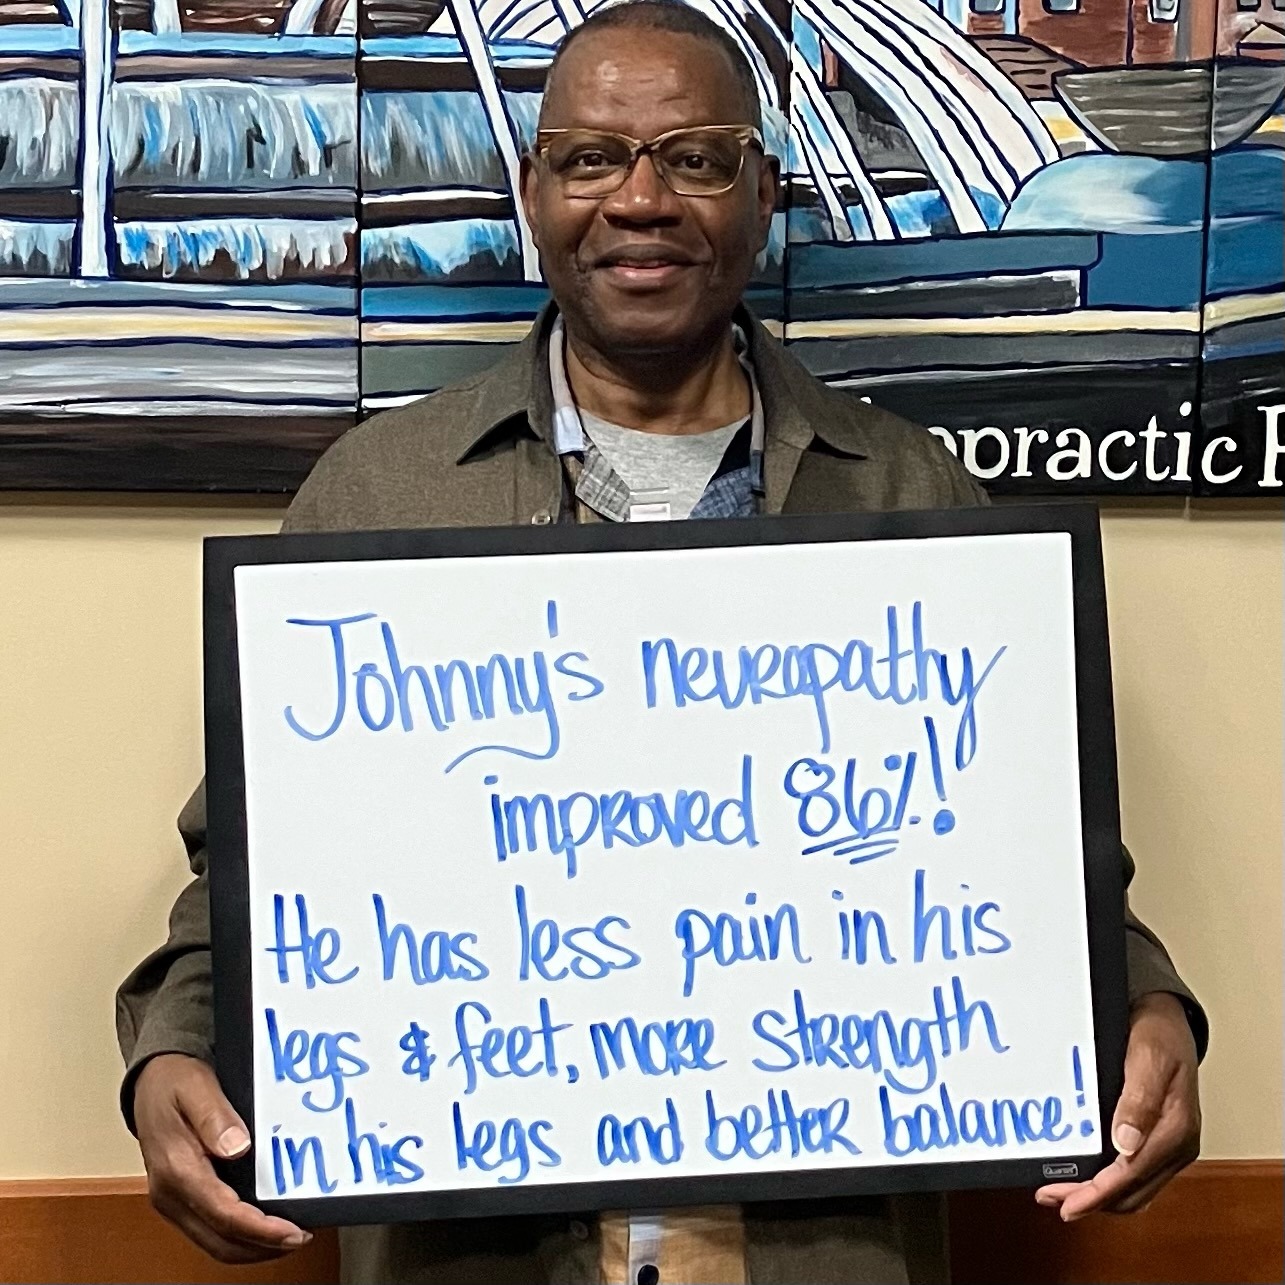 opractic
Johnny's neuropathy
improved 86%!
He has less pain in his
legs & feet, more strength
in his legs and better balance!
Quartet